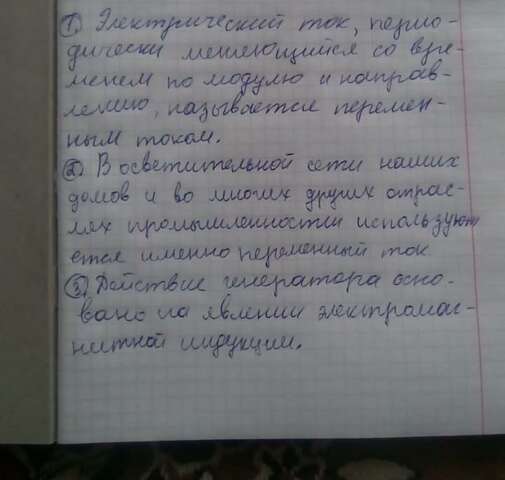 ① Электрический ток, перио-
дически меняющийся со вре-
менем по модулю и направ-
лению, называется перемен-
ным током.
② В осветительной сети наших
домов и во многих других отрас-
лях промышленности используют
ется именно переменный ток
③ Действие генератора осно-
вано на явлении электромаг-
нитной индукции.